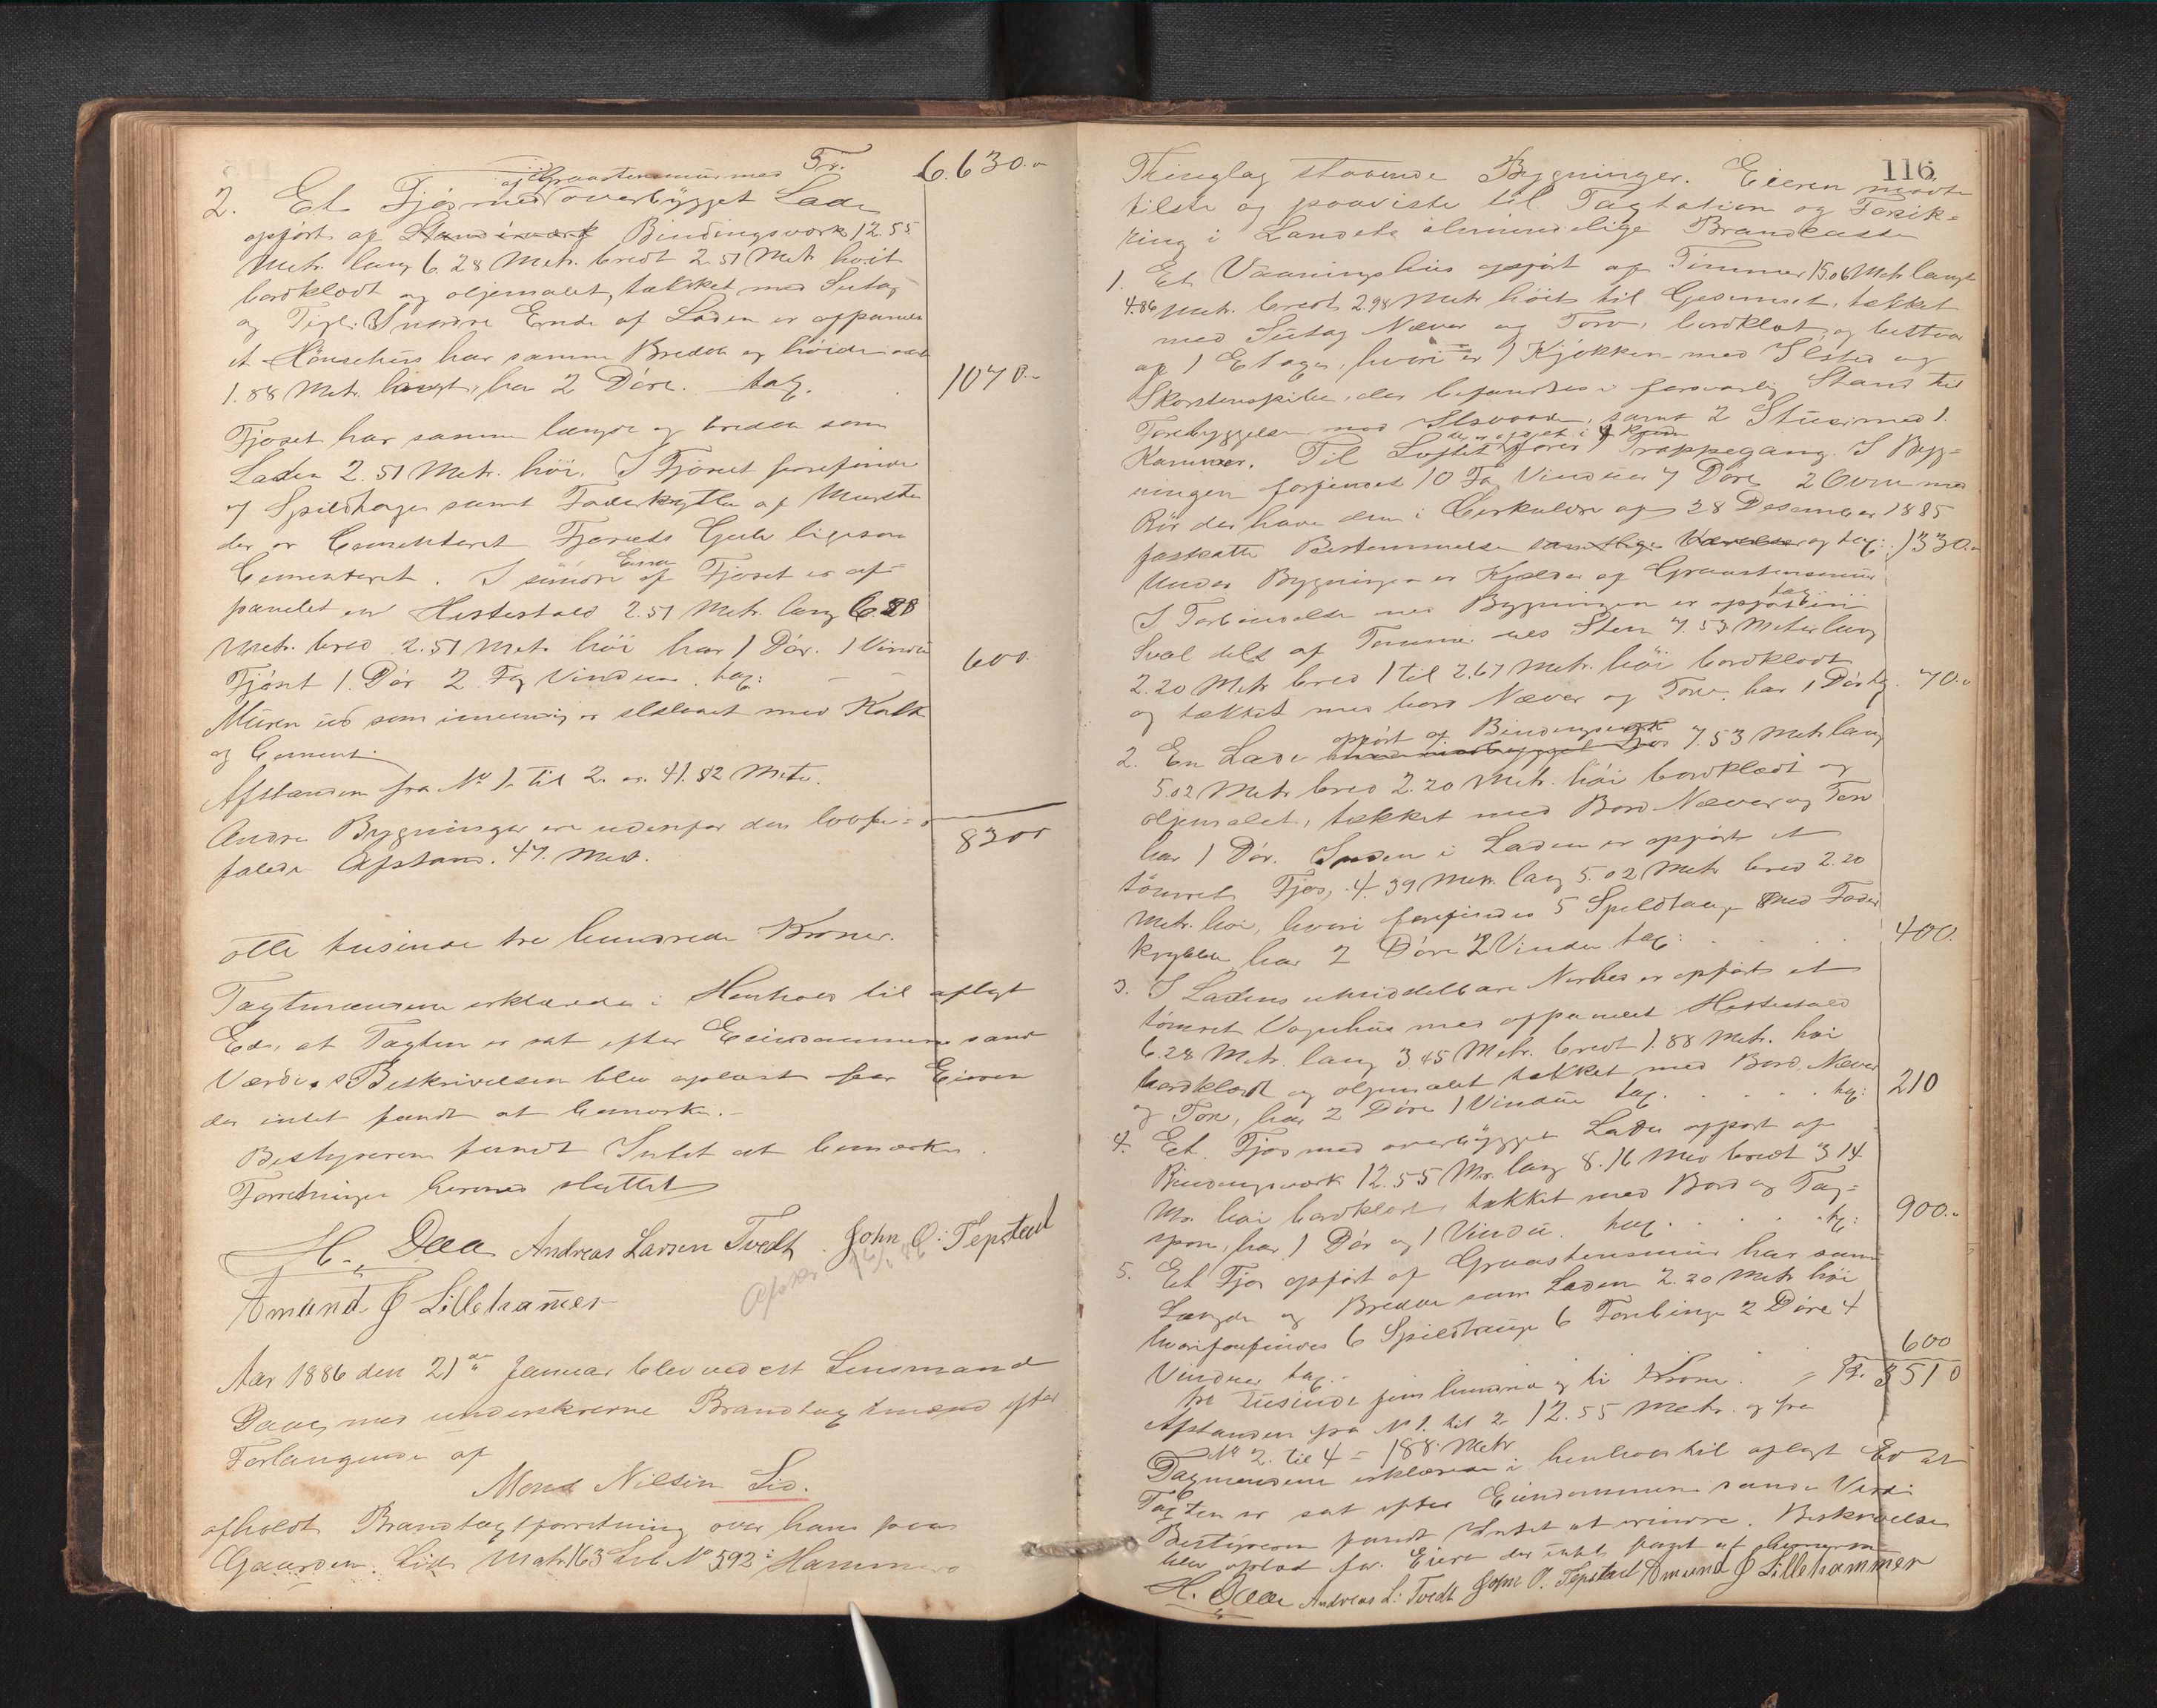 Tr. 6.630.-
af Graastensmuur med
2. Et Fjøs med overbygget Lade
opført af Bindingsværk 12.55
Metr. lang 6.28 Metr. bredt 2.51 Metr. høit
bordklædt og oljemalet, tækket med Sutag
og Tigl. I nordre Ende af Laden er afpanelet
et Hønsehus har samme Bredde og høide
1.88 Metr. langt, har 2 Døre. tax. 1070.-
Fjøset har samme længde og bredde som
Laden 2.51 Metr. høi. I Fjøset forefindes
7 Spildtouge samt Foderkrybber af Mursten
der er Cementeret Fjøsets Gulv ligesom
Cementeret. I søndre Ende af Fjøset er af-
panelet en Hestestald 2.51 Metr. lang 6.28
Metr. bred 2.51 Metr. høi har 1 Dør. 1 Vindu
Fjøset 1 Dør 2 Fag Vinduer. tax: 600.
Muren ud som indvendig er slettet med Kalk
og Cement.
Afstanden fra No 1 til 2. er. 41.82 Metr.
Andre Bygninger ere udenfor den lovbe-
falede Afstand. 47. Met. 8300
otte tusinde tre hundrede Kroner.
Taxtmændene erklærede i Henhold til aflagt
Ed, at Taxten er sat efter Eiendommens sande
Værdi. Beskrivelsen blev oplæst for Eieren
der intet fandt at bemærke.-
Bestyreren fandt Intet at bemærke.
Forretningen hermed sluttet
H. Daae Andreas Larsen Tvedt. John O. Tepstad
Amund J Lillehammer
Aar 1886 den 21de Januar blev ved cst Lensmand
Daae med underskrevne Brandtaxtmænd efter
Forlangende af
Mons Nilsen Lid.
afholdt Brandtaxtforretning over hans paa
Gaarden Lid Matr. 163 Lb. No 592 i Hammers
116
Thinglag staaende Bygninger. Eieren mødte
tilstede og paaviste til Taxtation og Forsik-
ring i Landets almindelige Brandcasse
1. Et Vaaningshus opført af Tømmer 15.06 Metr. langt
4.86 Metr. bredt 2.98 Metr. høit til Gesimset, tækket
med Sutag Næver og Torv, bordklæt, og bestaar
af 1 Etage, hvori er 1 Kjøkken med Ilsted og
Skorstenspibe, der befandtes i forsvarlig Stand til
Forebyggelse mod Ildsvaade, samt 2 Stuer med 1
Kammer. Til Loftet fører 1 Trappegang. I Byg-
ningen forfindes 10 Fag Vinduer 7 Døre 2 Ovne med
Rør der have den i Cirkulære af 28 Desember 1885
fastsatte Bestemmelse og tax: 1330.-
Under Bygningen er Kjælder af Graastensmuur
I Forbindelse med Bygningen er opført en
Sval dels af Tømmer dels Sten 7.53 Meter lang
2.20 Metr. bred 1 til 2.67 Metr. høi bordklædt
og tækket med bord Næver og Torv, har 1 Dør tax. 70.-
opført af Bindingsværk
2. En Lade 7.53 Metr. lang
5.02 Metr. bred 2.20 Metr. høi bordklædt og
oljemalet, tækket med Bord Næver og Torv
har 1 Dør. Inden i Laden er opført et
tømret Fjøs, 4.39 Metr. lang 5.02 Metr. bred 2.20
Metr. høi, hvori forefindes 5 Spildtouge med Foder
krybbe, har 2 Døre 2 Vindu tax: 400.
3. I Ladens umiddelbare Nærhed er opført et
tømret Vognhus med afpanelet Hestestald
6.28 Metr. lang 3.45 Metr. bredt 1.88 Metr. høi
bordklædt og oljemalet tækket med Bord, Næver
og Torv, har 2 Døre 1 Vindue tax. 210
4. Et Fjøs med overbygget Lade opført af
Bindingsværk 12.55 Mr. lang 8.16 Metr. bredt 3.14
Mr. høi bordklædt tækket med Bord og Tag-
spon, har 1 Dør og 1 Vindu. tax. 900.-
5. Et Fjøs opført af Graastensmuur har samme
Længde og Bredde som Laden 2.20 Metr. høi
hvori forefindes 6 Spildtouge 6 Forbinge 2 Døre 4
Vinduer tax. 600
tre Tusinde fem hundrede og ti Kroner. Kr. 3510
Afstanden fra No 1. til 2 12.55 Metr. og fra
No 2. til 4 = 188 Metr
Taxmændene erklærede i henhold til aflagt Ed at
Taxten er sat efter Eiendommens sande Værdi
Bestyreren fandt Intet at erindre. Beskrivelsen
blev oplæst for Eieren der intet fandt at bemærke
H. Daae Andreas L. Tvedt John O. Tepstad Amund J Lillehammer